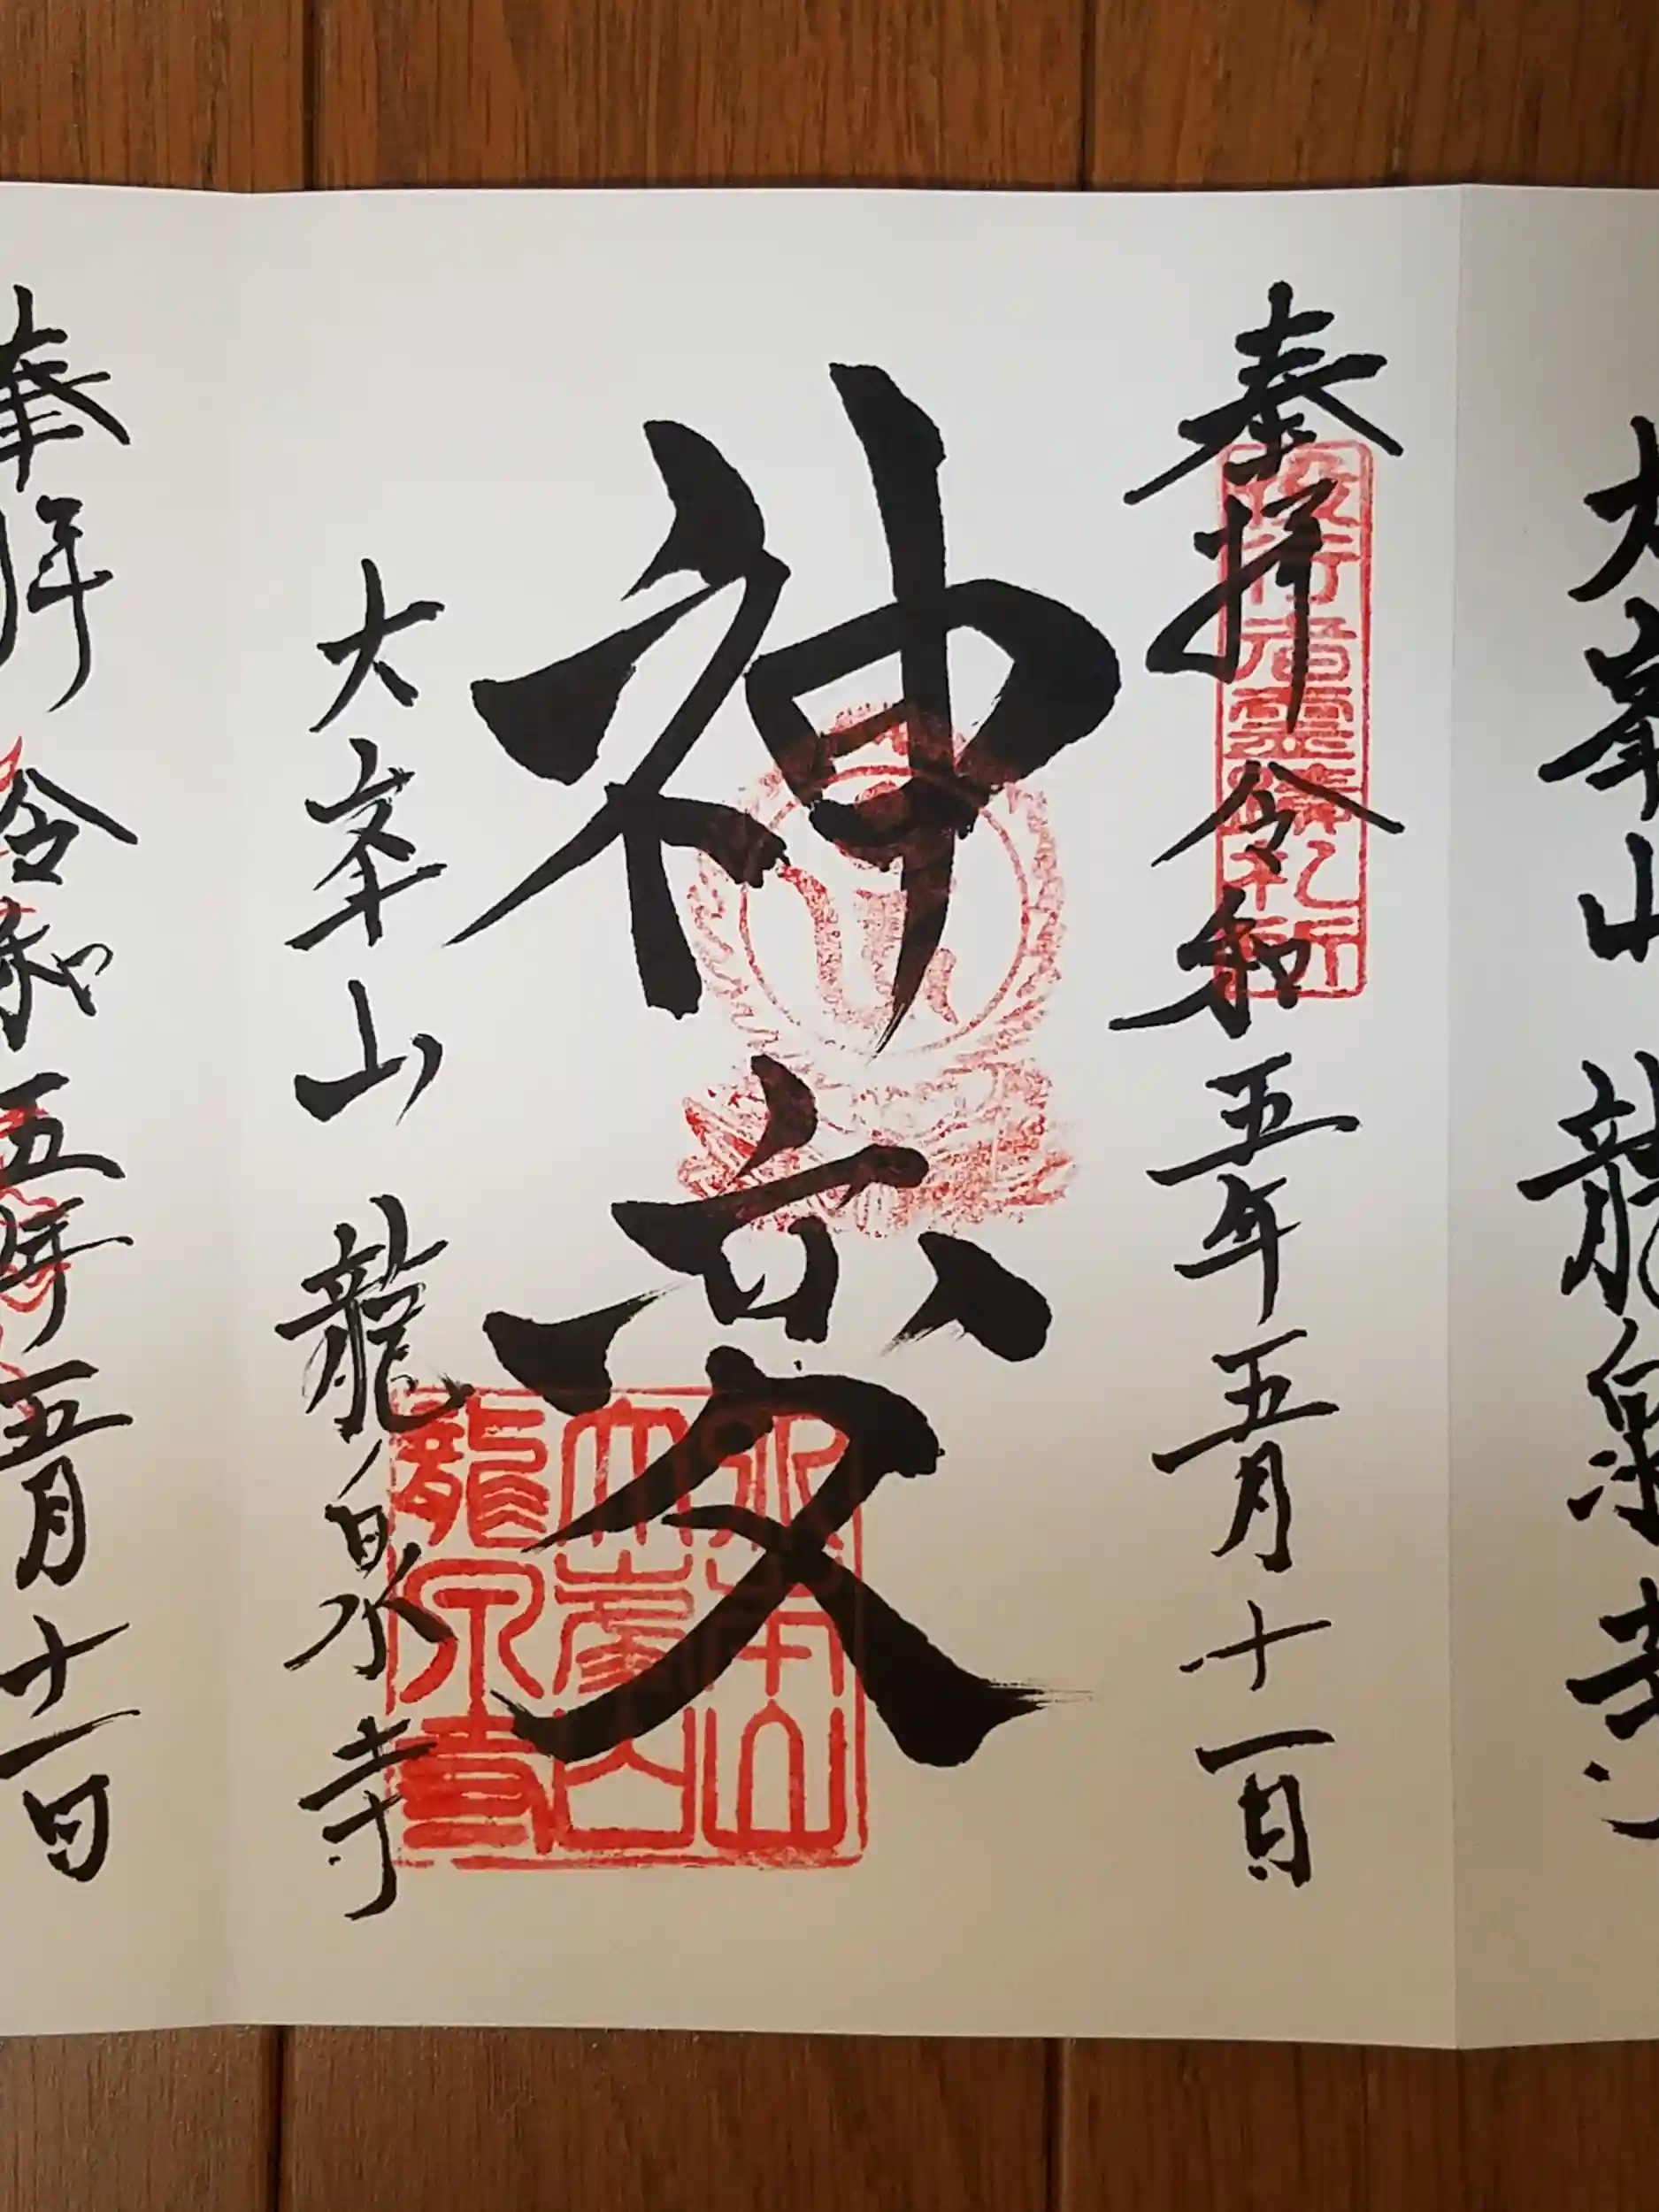 大峯山 龍泉寺
奉拝 令和五年五月十一日
役行者霊蹟札所
神変
大峯山 龍泉寺
龍泉寺
大峯山
奉拝 令和五年五月十一日